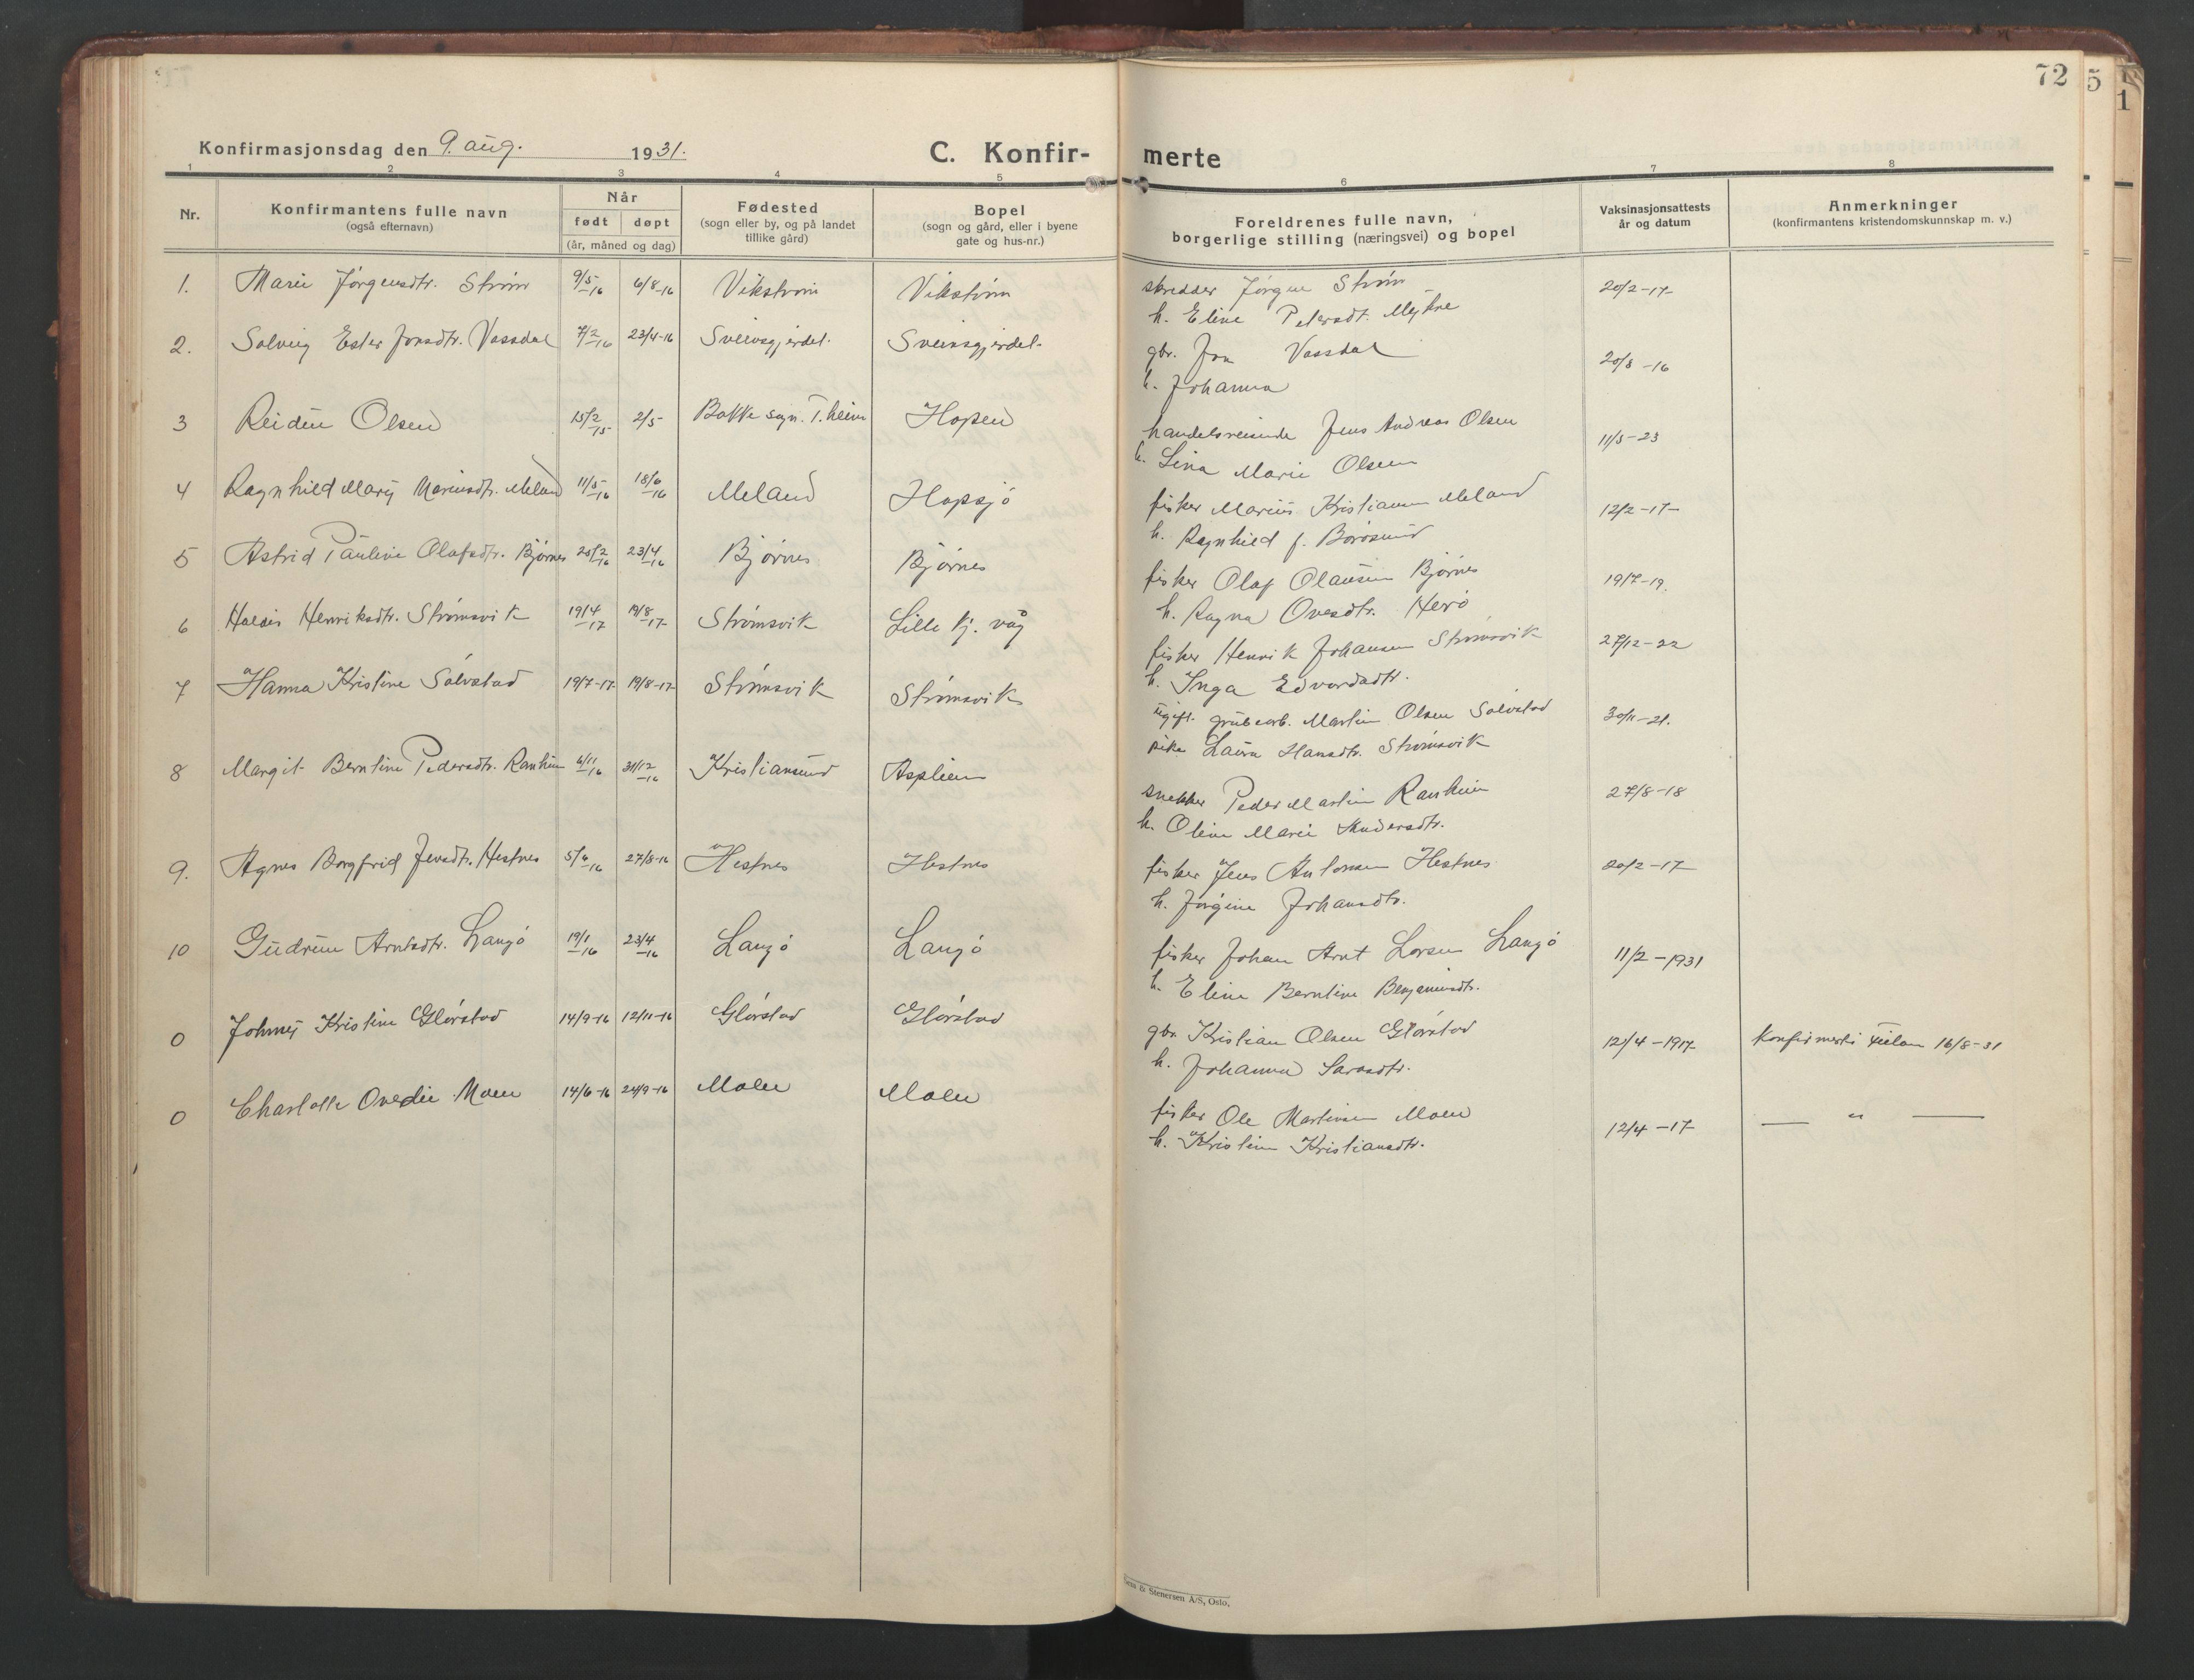 72
5
1
Konfirmasjonsdag den 9. aug. 1931.
C. Konfir-
merte
1 2 3 4 5 6 7 8
Nr.
Konfirmantens fulle navn
(også efternavn)
Når
født døpt
(år, måned og dag)
Fødested
(sogn eller by, og på landet
tillike gård)
Bopel
(sogn og gård, eller i byene
gate og hus-nr.)
Foreldrenes fulle navn,
borgerlige stilling (næringsvei) og bopel
Vaksinasjonsattests
år og datum
Anmerkninger
(konfirmantens kristendomskunnskap m. v.)
1. Marie Jørgensdtr. Strøm 9/5-16 6/8-16 Vikstrøm Vikstrøm skredder Jørgen Strøm 20/2-17
h. Eline Petersdt. Myhre
2. Solveig Ester Jonsdtr. Vassdal 7/2-16 23/4-16 Sveinsgjerdet. Sveinsgjerdet. gbr. Jon Vassdal 20/8-16
h. Johanna
3 Reidun Olsen 15/2-15 2/5 Bakke sogn. T.heim Hopen handelsreisende Jens Andreas Olsen 11/5-23
h. Lina Marie Olsen
4 Ragnhild Mary Mariusdtr. Meland 11/5-16 18/6-16 Meland Hopsjø fisker Marius Kristiansen Meland 12/2-17
h. Ragnhild f. Børøsund
5 Astrid Pauline Olafsdtr. Bjørnes 25/2-16 23/4-16 Bjørnes Bjørnes fisker Olaf Olausen Bjørnes 19/7-19.
h. Ragna Ovesdtr. Herø
6 Haldis Henriksdtr. Strømsvik 19/4-17 19/8-17 Strømsvik Lille Kj. våg fisker Henrik Johansen Strømsvik 27/12-22
h. Inga Edvardsdtr.
7 Hanna Kristine Solvstad 19/7-17 19/8-17 Strømsvik Strømsvik ugift. grubearb. Martin Olsen Solvstad 30/11-21.
pike Laura Hansdtr. Strømsvik
8 Margit Berntine Pedersdtr. Ranheim 6/11-16 31/12-16 Kristiansund Asplien snekker Peder Martin Ranheim 27/8-18
h. Oline Marie Andersdtr.
9. Agnes Borgfrid Jensdtr. Hestnes 5/6-16 27/8-16 Hestnes Hestnes fisker Jens Antonsen Hestnes 20/2-17
h. Jørgine Johansdtr.
10 Gudrun Arntsdtr. Langø 19/1-16 23/4-16 Langø Langø fisker Johan Arnt Larsen Langø 11/2-1931
h. Eline Berntine Benjaminsdtr.
0 Johnny Kristine Glørstad 14/9-16 12/11-16 Glørstad Glørstad gbr. Kristian Olsen Glørstad 12/4-1917 Konfirmert i Fillan 16/8-31
h. Johanna Larsdtr.
0 Charlotte Ovedie Moen 14/6-16 24/9-16 Moen Moen fisker Ole Martinsen Moen 12/4-17 — " —
h. Kristine Kristiansdtr.
& Stenersen A/S, Oslo.